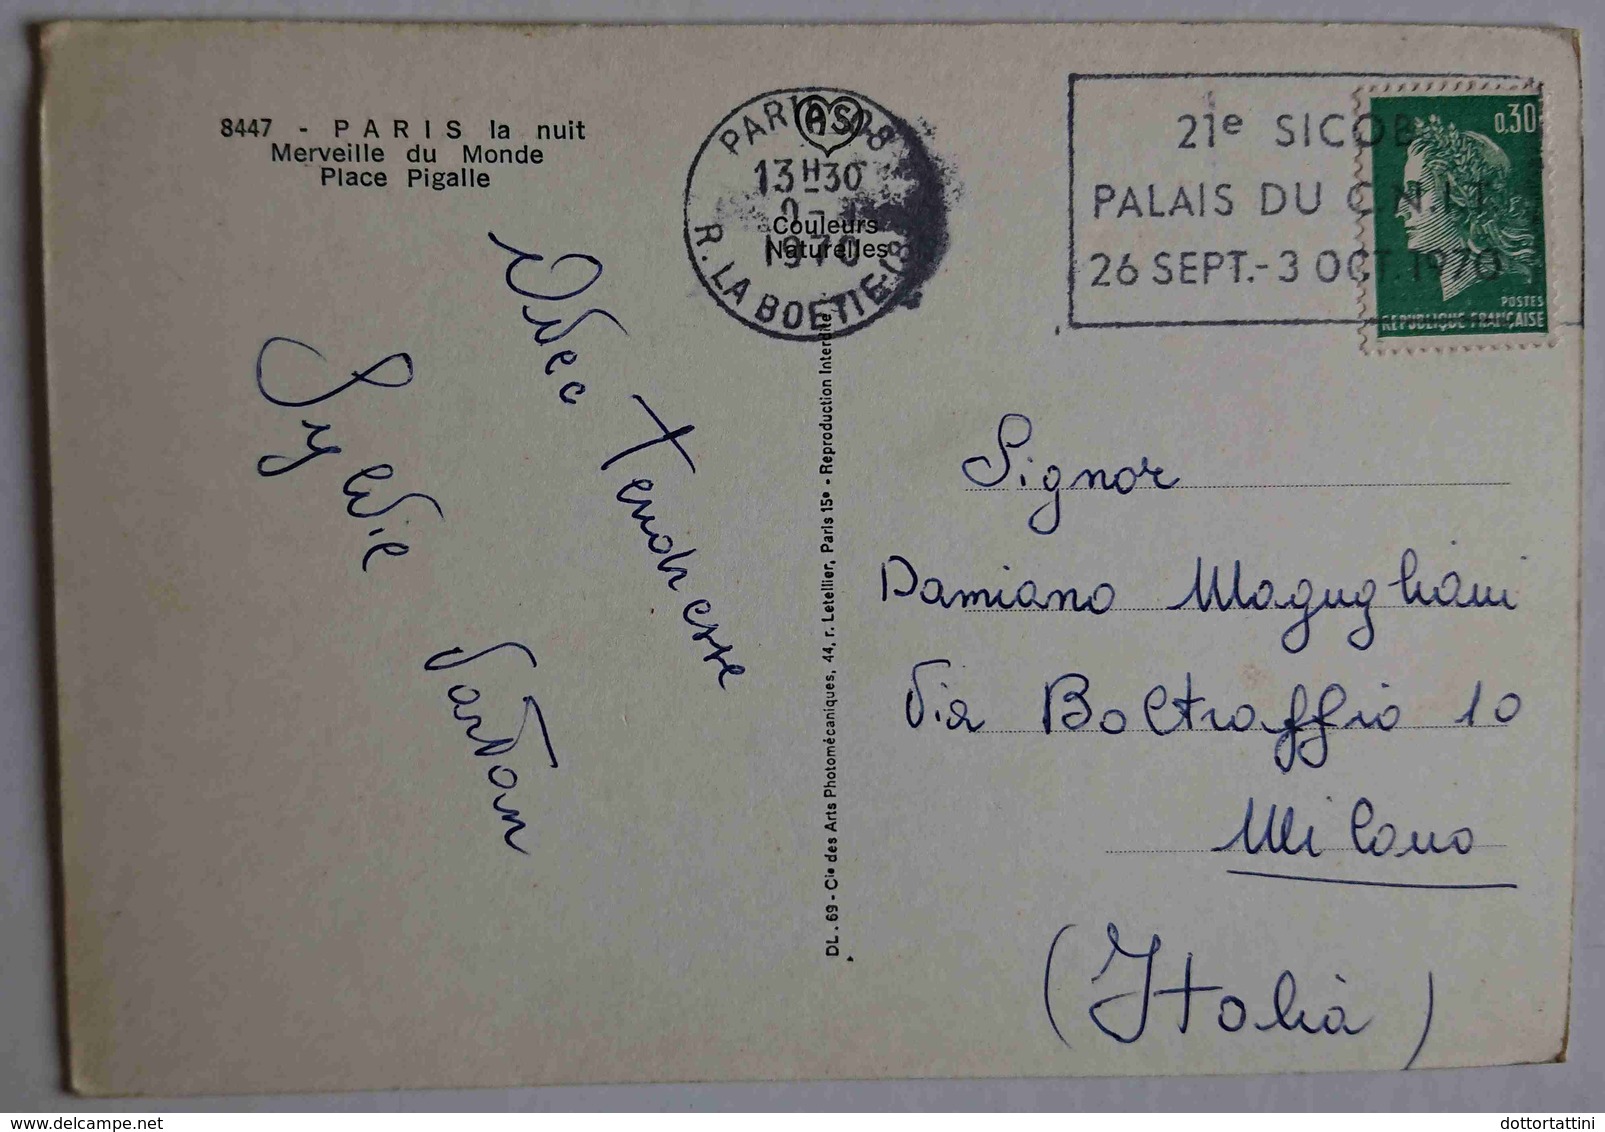 8447 - PARIS la nuit
Merveille du Monde
Place Pigalle
Avec
Tendresse
Sylvie
Vartan
AS
Couleurs
Naturelles
PARIS 08
13H30
1970
R. LA BOETIE (8
21e SICOB
PALAIS DU C.N.I.T.
26 SEPT.-3 OCT 1970
0,30
POSTES
REPUBLIQUE FRANÇAISE
DL. 69 - Cie des Arts Photomécaniques, 44, r. Letellier, Paris 15e - Reproduction Interdite
Signor
Damiano Magugliani
Via Boltraffio 10
Milano
(Italia)
delcampe.net
dottortattini